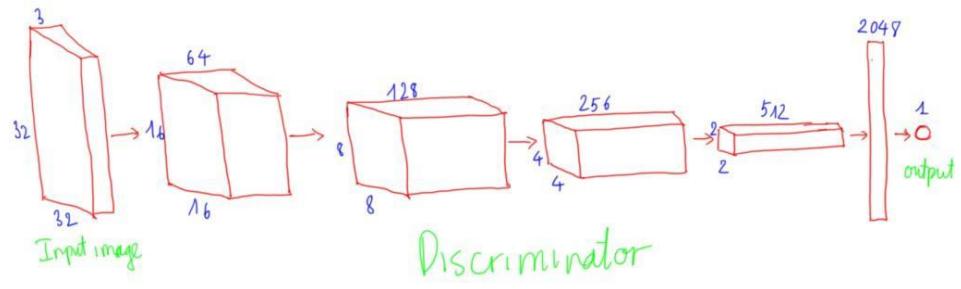 3
32
32
Input image
64
16
16
128
8
8
256
4
4
512
2
2
2048
1
output
Discriminator